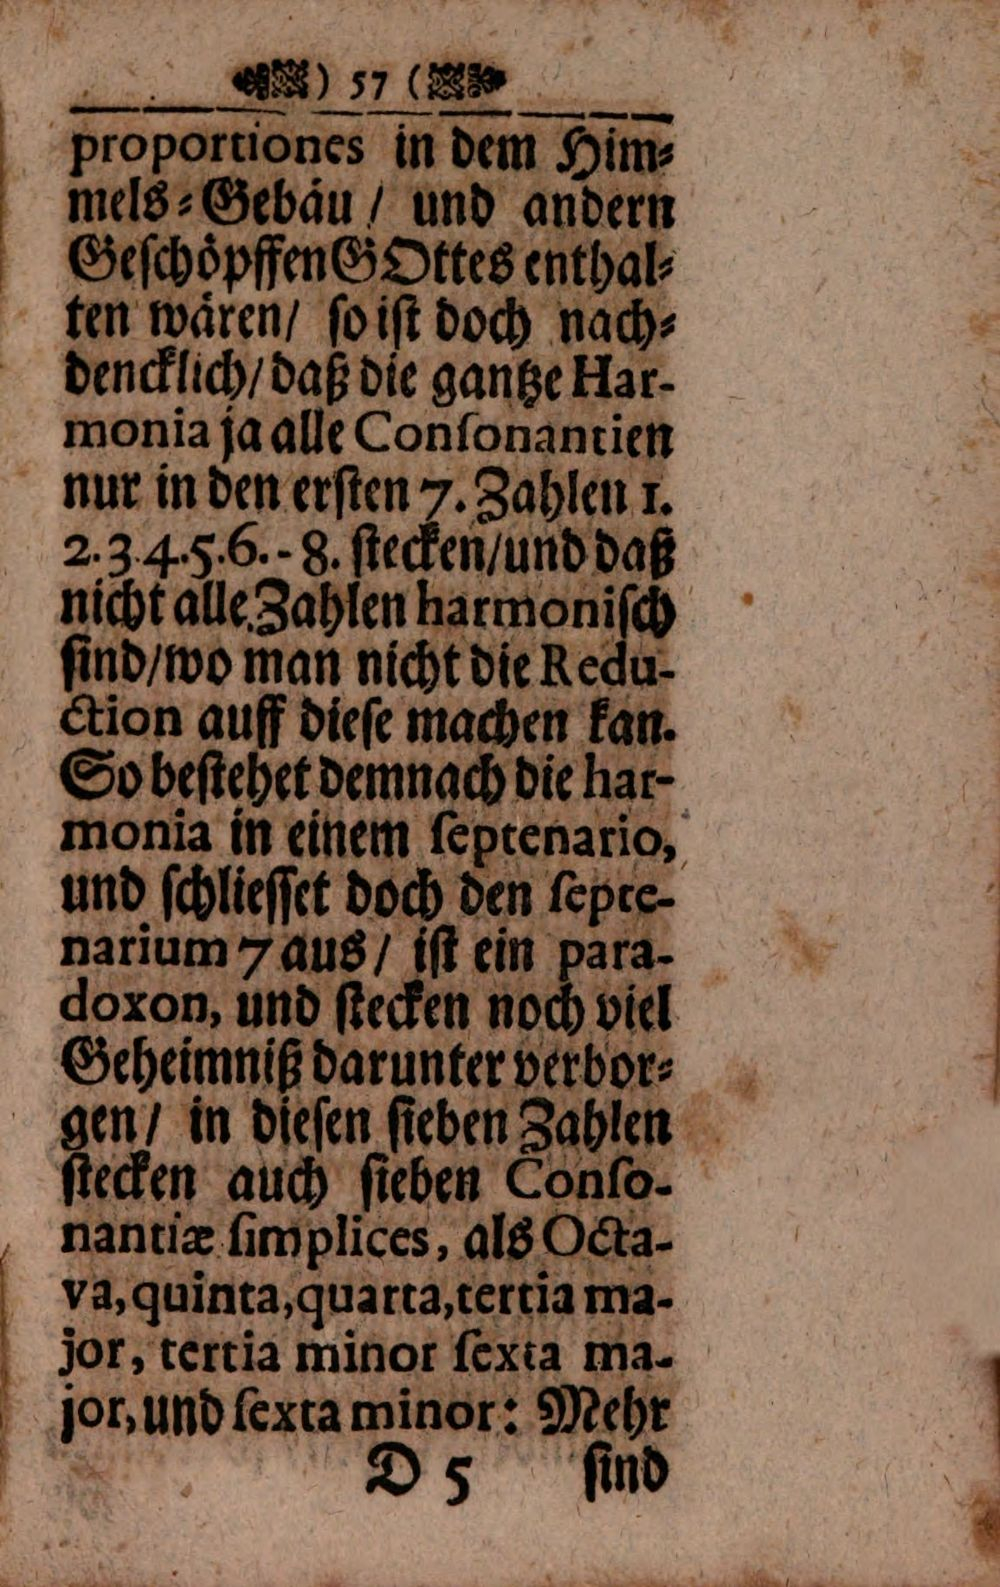 ) 57 (
proportiones in dem Him⸗
mels⸗Gebäu / und andern
Geſchöpffen GOttes enthal⸗
ten wären / ſo iſt doch nach⸗
dencklich / daß die gantze Har-
monia ja alle Conſonantien
nur in den erſten 7. Zahlen 1.
2. 3. 4. 5. 6. - 8. ſtecken / und daß
nicht alle Zahlen harmoniſch
ſind / wo man nicht die Redu-
ction auff dieſe machen kan.
So beſtehet demnach die har-
monia in einem ſeptenario,
und ſchlieſſet doch den ſepte-
narium 7 aus / iſt ein para-
doxon, und ſtecken noch viel
Geheimniß darunter verbor⸗
gen / in dieſen ſieben Zahlen
ſtecken auch ſieben Conſo-
nantiæ ſimplices, als Octa-
va, quinta, quarta, tertia ma-
jor, tertia minor ſexta ma-
jor, und ſexta minor: Mehr
D 5 ſind